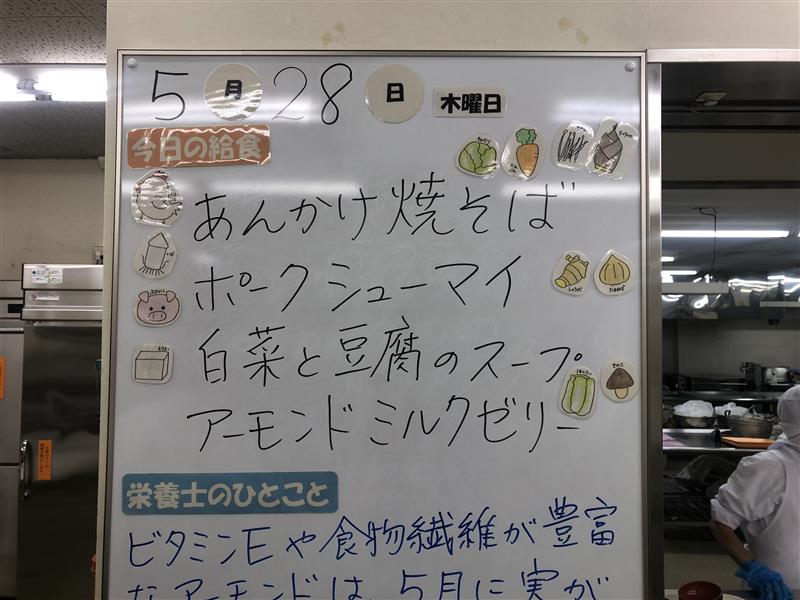 5月28日 木曜日
今日の給食
あんかけ焼そば
ポークシューマイ
白菜と豆腐のスープ
アーモンドミルクゼリー
栄養士のひとこと
ビタミンEや食物繊維が豊富
なアーモンドは、5月に実が